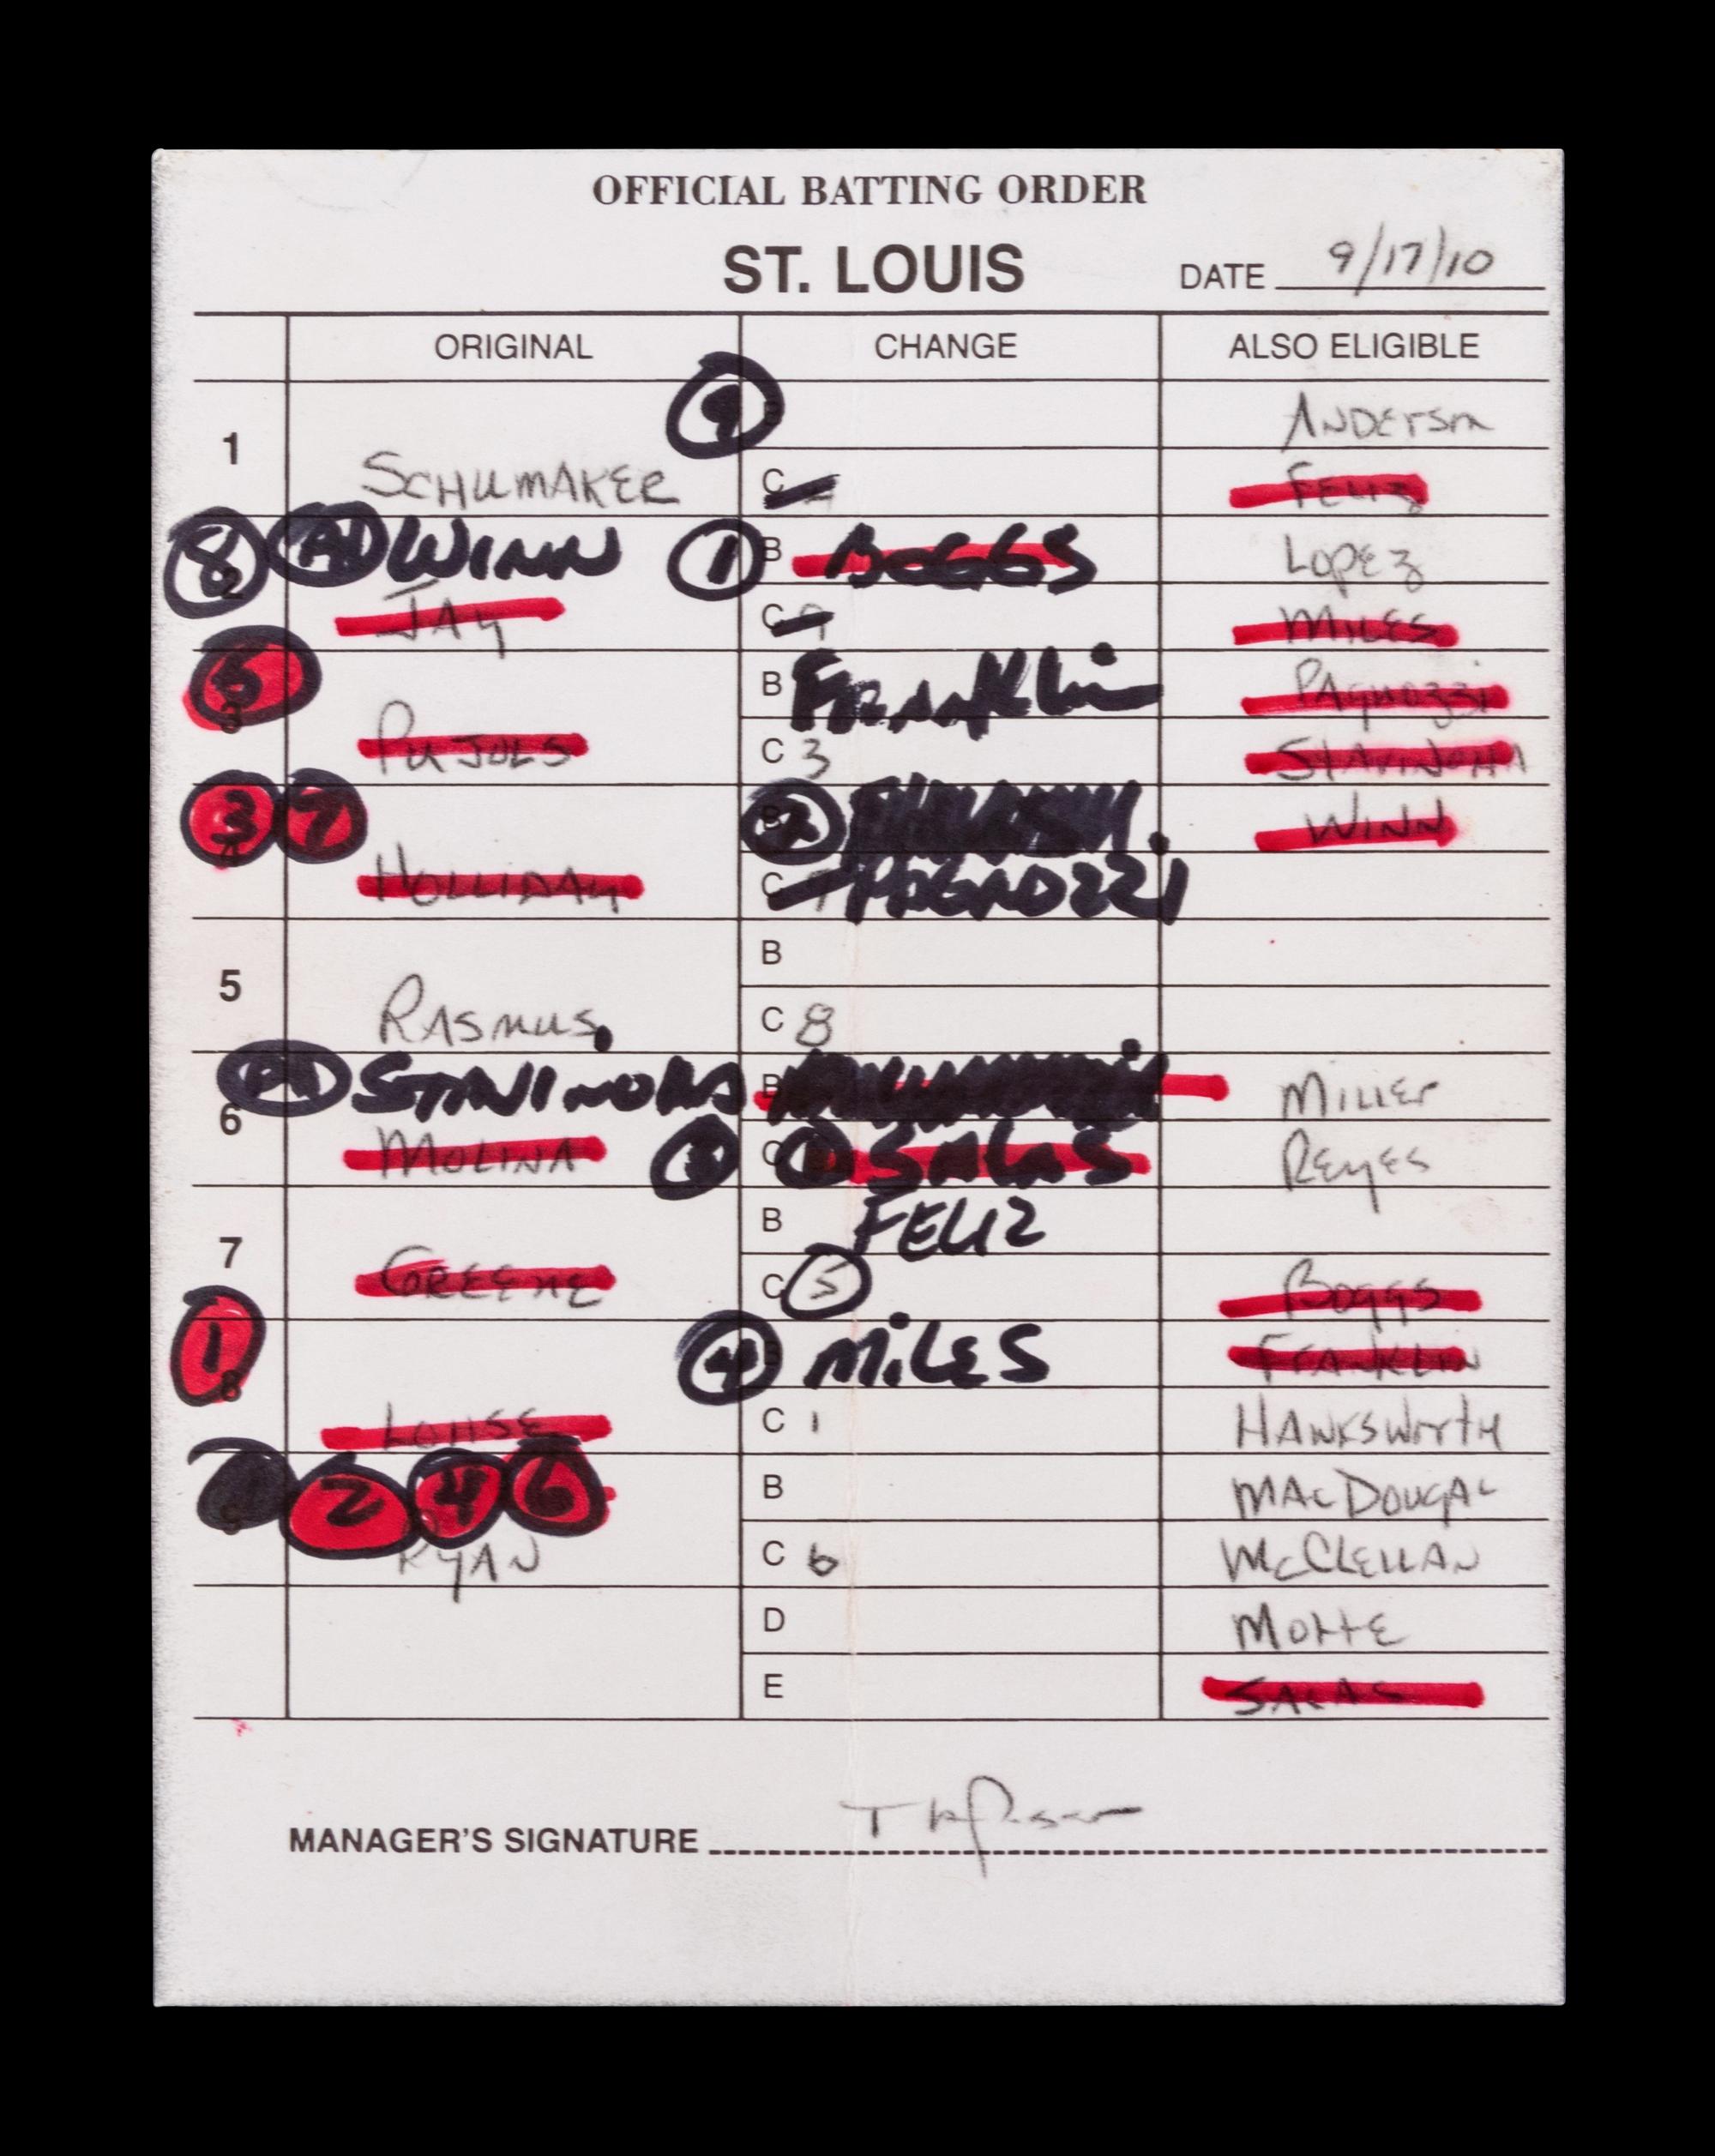 OFFICIAL BATTING ORDER
ST. LOUIS DATE 9/17/10
ORIGINAL CHANGE ALSO ELIGIBLE
9 ANDERSON
1 SCHUMAKER C FELIZ
8 WINN 1 B BOGGS LOPEZ
2 JAY C 9 MILES
5 B FRANKLIN PAGNOZZI
3 PUJOLS C 3 STAVINOHA
3 7 2 WINN
4 HOLLIDAY C 7 PAGNOZZI
B
5 RASMUS C 8
PH STAVINOHA B MILLER
6 MOLINA 3 C SALAS REYES
B FELIZ
7 GREENE C 5 BOGGS
1 4 B MILES FRANKLIN
8 LOHSE C 1 HAWKSWORTH
2 4 6 B MACDOUGAL
9 RYAN C 6 McCLELLAN
D MOTTE
E SALAS
MANAGER'S SIGNATURE